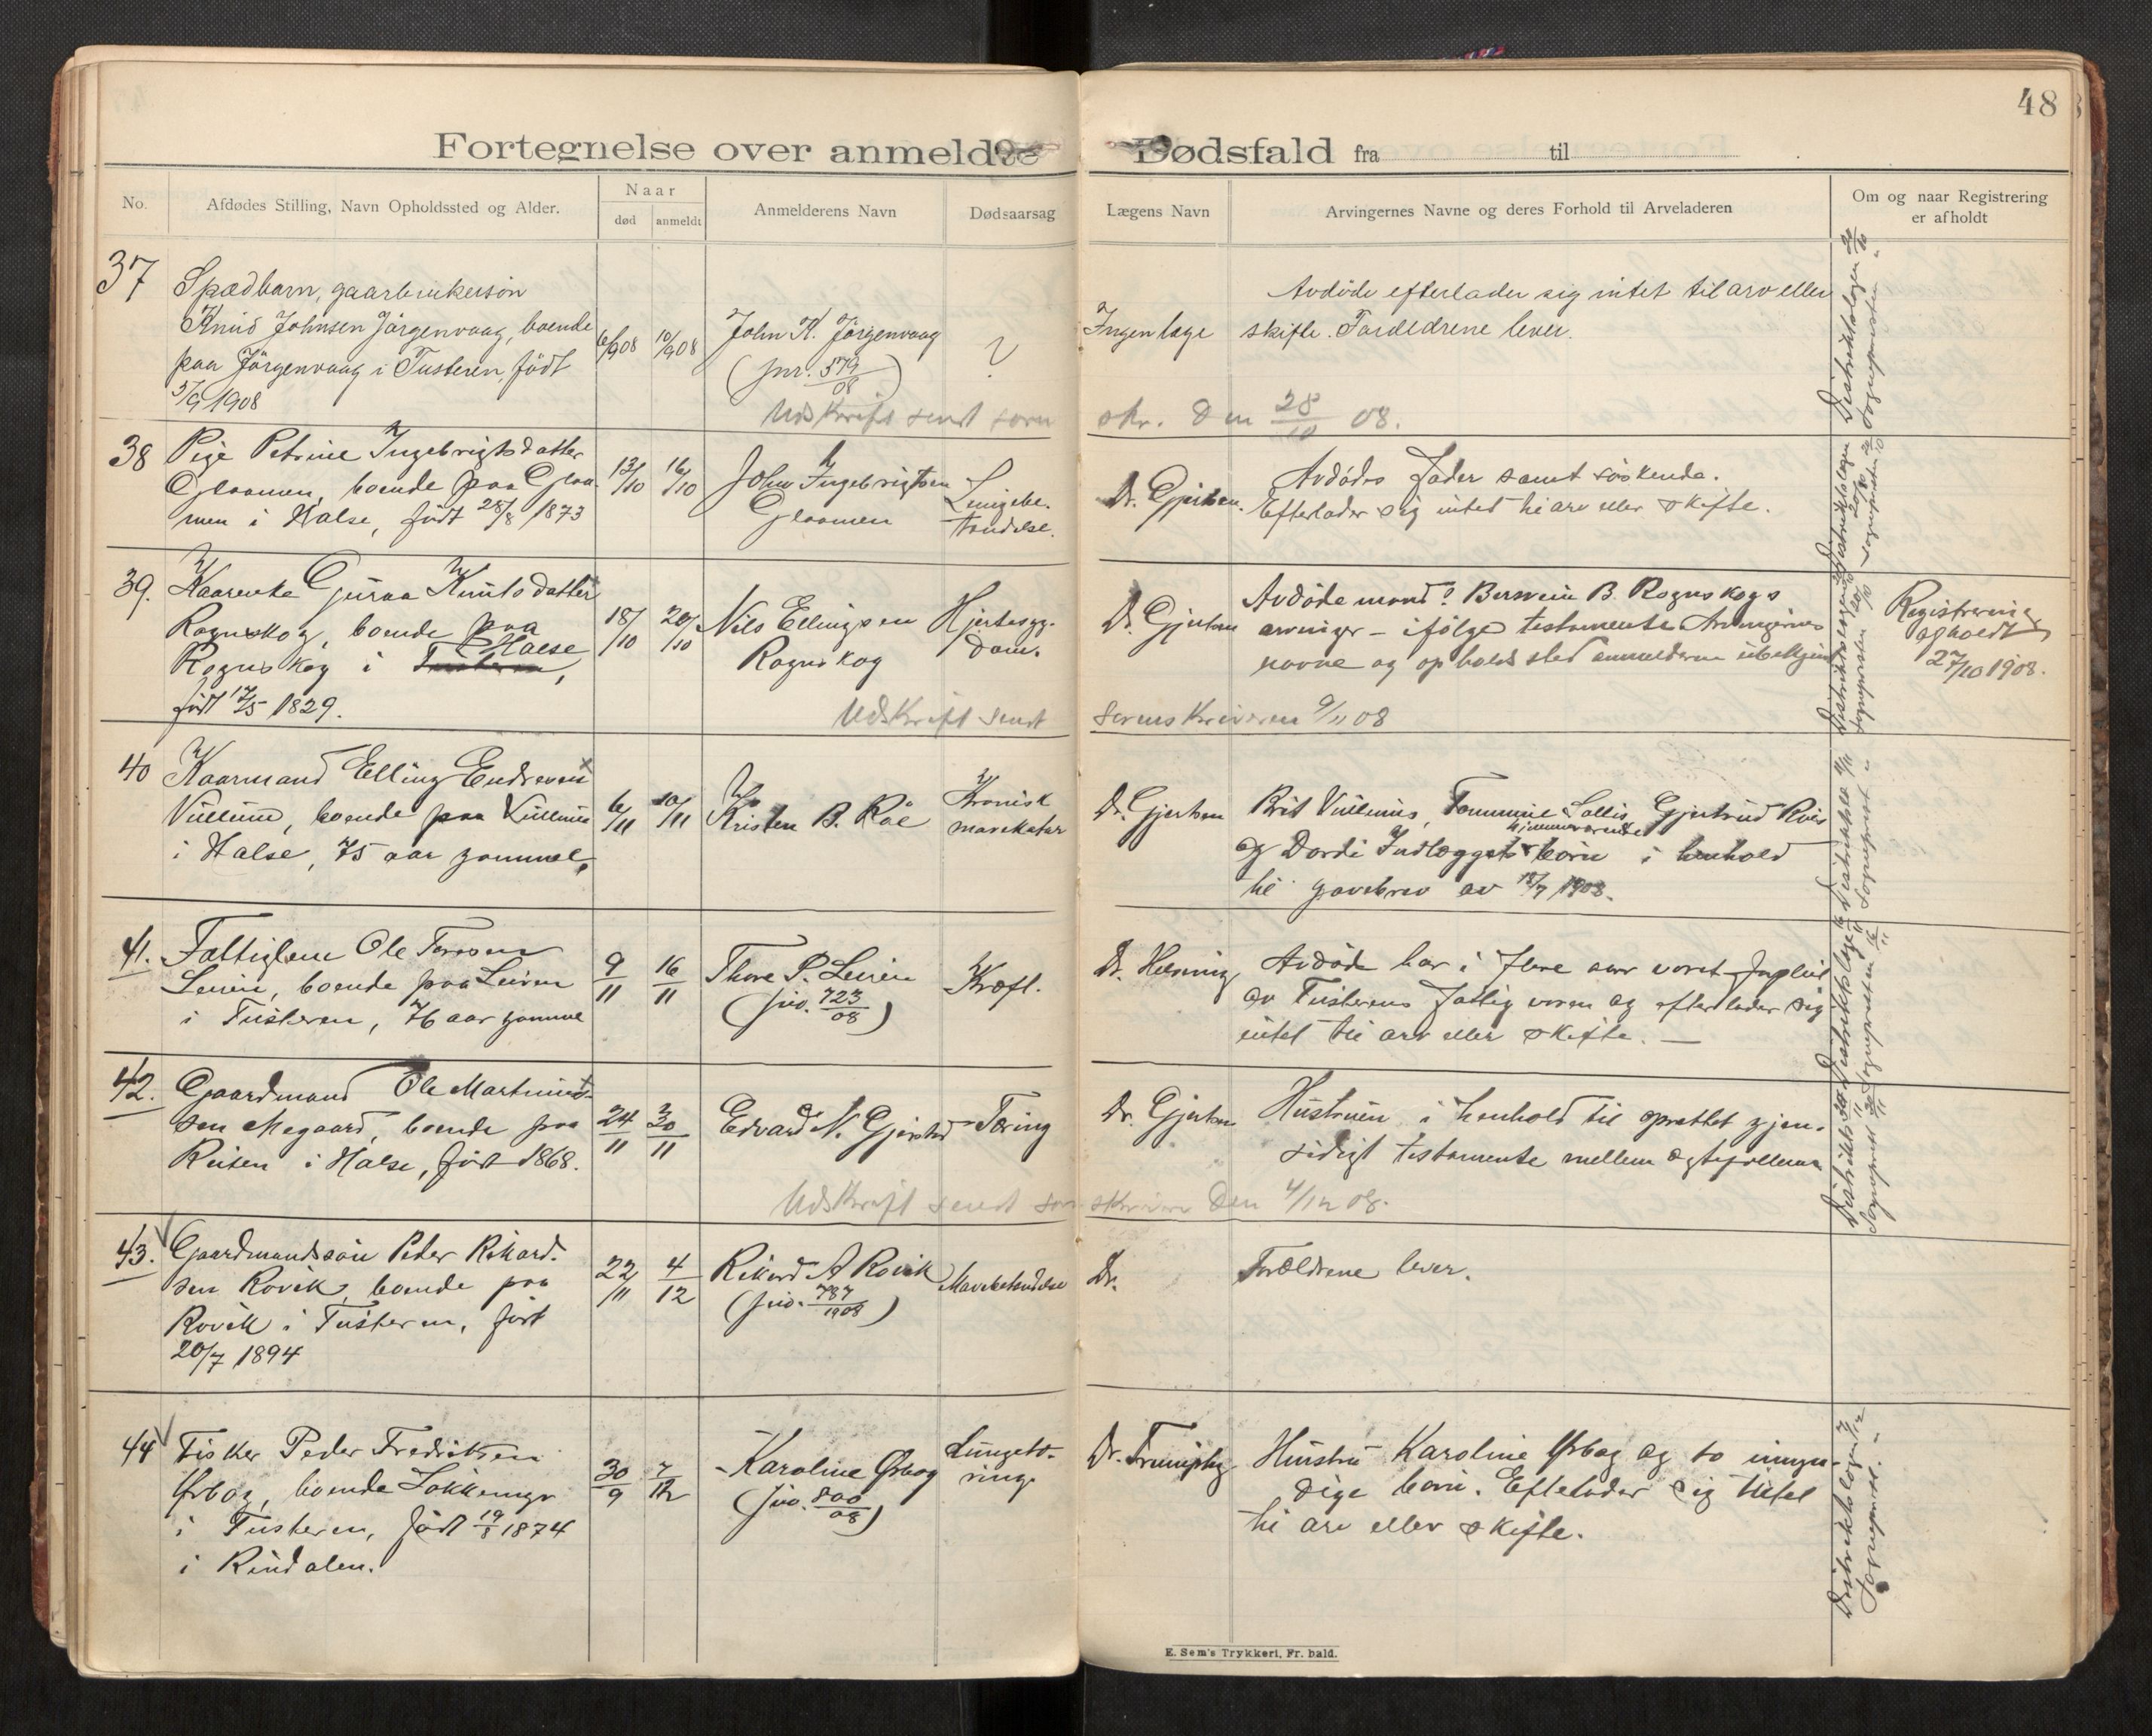 48
Fortegnelse over anmeldte Dødsfald fra til
No.
Afdødes Stilling, Navn Opholdssted og Alder.
Naar
død anmeldt
Anmelderens Navn
Dødsaarsag
Lægens Navn
Arvingernes Navne og deres Forhold til Arveladeren
Om og naar Registrering
er afholdt
37
Spædbarn, gaarbrukersøn
Knud Johnsen Jörgenvaag, boende
paa Jörgenvaag i Tusteren, födt
5/9 1908
6/9 08
10/9 08
John K. Jörgenvaag
(jnr. 579/08)
?
Ingen læge
Avdöde efterlader sig intet til arv eller
skifte. Forældrene lever.
Distriktslægen 20/10
Sogneprosten "
Udskrift sendt soren
skr. den 28/10 08.
38
Pige Petrine Ingebrigtsdatter
Gloomen, boende paa Gloo-
men i Halse, födt 28/8 1873
13/10
16/10
John Ingebrigtsen
Gloomen
Lungebe-
tændelse.
Dr. Gjertsen.
Avdödes fader samt söskende.
Efterlader sig intet til arv eller skifte.
39.
Kaarenke Guraa Knutsdatter
Rognskog, boende paa
Rognskog i Tusteren, Halse
födt 17/5 1829.
18/10
20/10
Nils Ellingsen
Rognskog
Hjertesyg-
dom.
Dr. Gjertsen
Avdöde mand? Bersvein B. Rognskogs
arvinger – ifölge testamente. Arvingernes
navne og opholdssted anmelderen ubekjendt
Registrering
afholdt
27/10 1908.
Udskrift sendt
sorenskriveren 9/11 08
40
Kaarmand Elling Endresen
Vullum, boende paa Vullum
i Halse, 75 aar gammel.
6/11
10/11
Kristen B. Roe
Kronisk
mavekatar
Dr. Gjertsen
Brit Vullums, Gjertrud
hjemmeværende
og Dordi Indlæggets börn i henhold
til gavebrev av 18/7 1908.
41.
Fattiglem Ole Toresen
Leirin, boende paa Leirin
i Tusteren, 76 aar gammel
9/11
16/11
Thore P. Leirin
(jno. 723/08)
Kræft.
Dr.
Avdöde har i flere aar voret forpleiet
av Tusterens fattigvæsen og efterlader sig
intet til arv eller skifte. —
42.
Gaardmand Ole Martinus-
sen Megaard, boende paa
Reiten i Halse, födt 1868.
24/11
30/11
Edvard N. Gjersted
Tæring
Dr. Gjertsen
Hustruen i henhold til oprettet gjen-
sidigt testamente mellem ægtefællerne
Udskrift sendt soren
skriveren den 4/12 08.
43.
Gaardmandssön Peder Rikard-
sen Rovik, boende paa
Rovik i Tusteren, födt
20/7 1894
22/11
4/12
Rikard A Rovik
(jno. 787/1908)
Mavebetændelse
Dr.
Forældrene lever.
44
Fisker Peder Fredriksen
Ørbog, boende Løkkemyr
i Tusteren, födt 19/8 1874
i Rindalen.
30/9
7/12
Karoline Ørbog
(jno. 800/08)
Lungetæ-
ring.
Dr.
Hustru Karoline Ørbog og to umyn-
dige børn. Efterlader sig intet
til arv eller skifte.
Distriktslægen 7/12
Sogneprest. "
E. Sem's Trykkeri, Fr. hald.